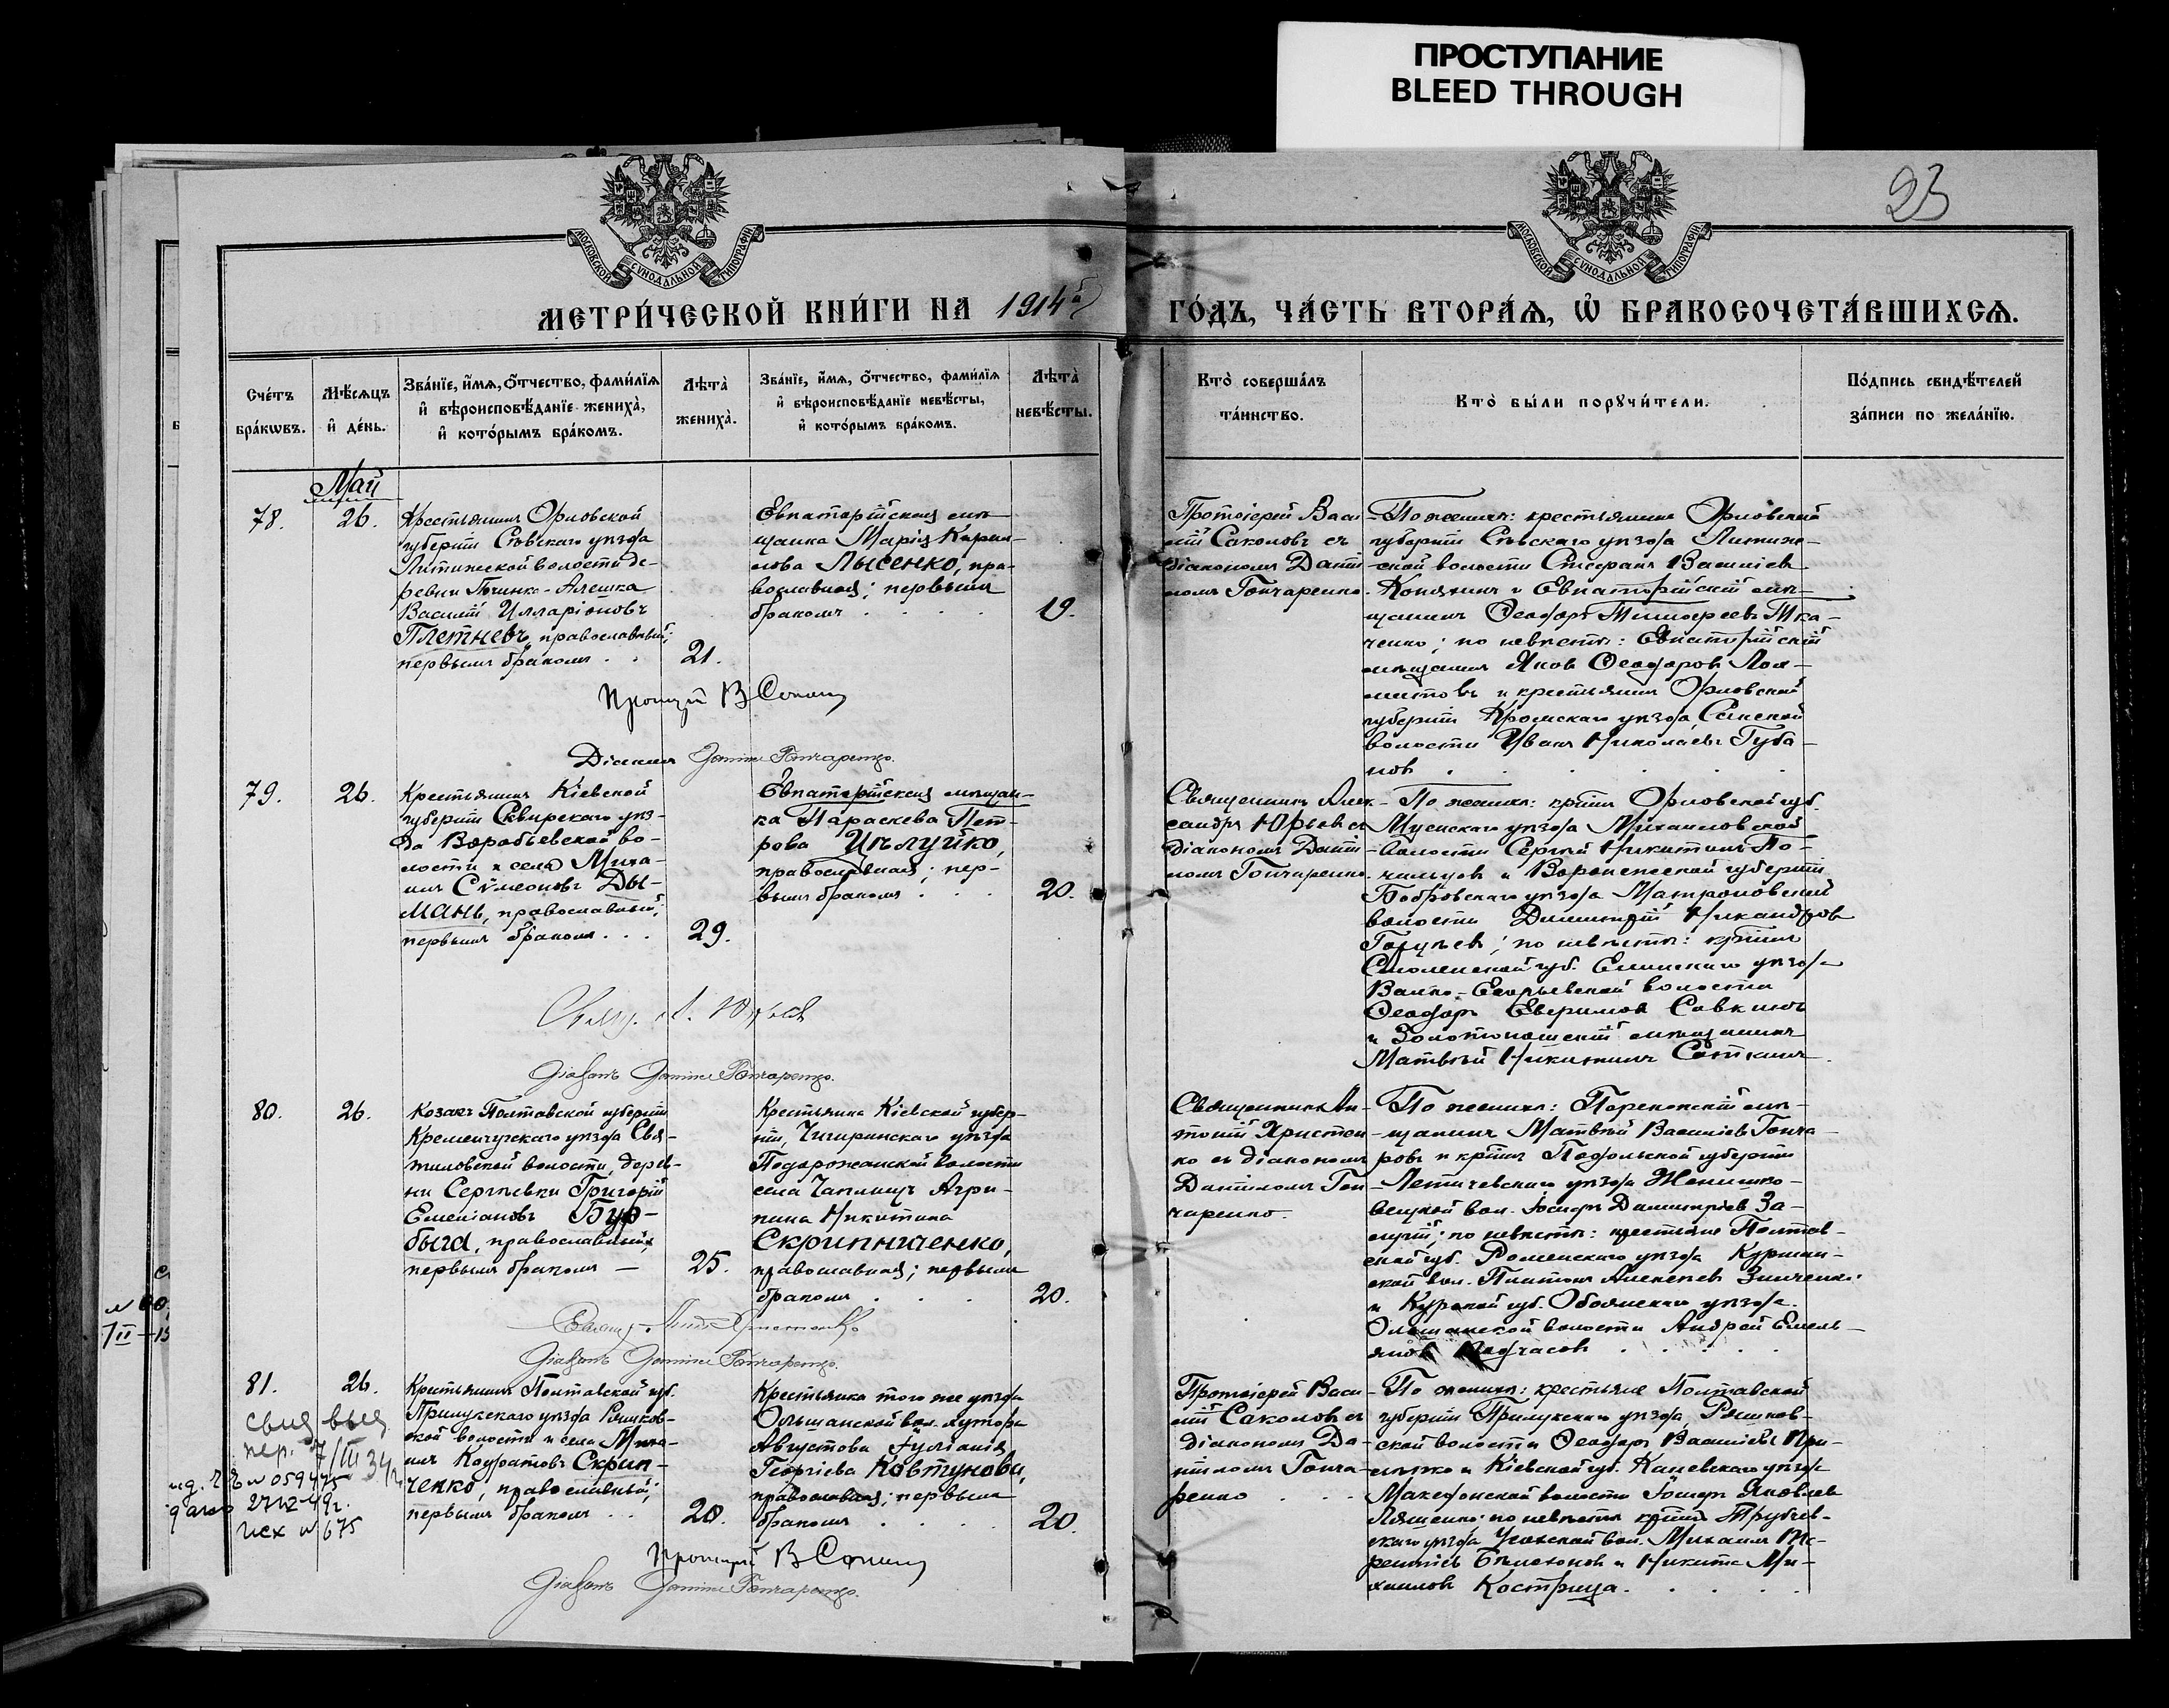 ПРОСТУПАНИЕ
BLEED THROUGH
23
МОСКОВСКОЙ СѴНОДАЛЬНОЙ ТИПОГРАФІИ
МОСКОВСКОЙ СѴНОДАЛЬНОЙ ТИПОГРАФІИ
МЕТРИ́ЧЕСКОЙ КНИ́ГИ НА 1914й
ГО́ДЪ, ЧА́СТЬ ВТОРА́Ѧ, Ѽ БРАКОСОЧЕТА́ВШИХСѦ.
Сче́тъ
бра́кѡвъ.
Мѣ́сѧцъ
и҆ де́нь.
Зва́нїе, и҆́мѧ, о҆́тчество, фами́лїѧ
и҆ вѣроисповѣ́данїе жениха̀,
и҆ кото́рымъ бра́комъ.
Лѣта̀
жениха̀.
Зва́нїе, и҆́мѧ, о҆́тчество, фами́лїѧ
и҆ вѣроисповѣ́данїе невѣ́сты,
и҆ кото́рымъ бра́комъ.
Лѣта̀
невѣ́сты.
Кто̀ соверша́лъ
та́инство.
Кто̀ бы́ли порꙋчи́тели.
По́дпись свидѣ́телей
за́писи по жела́нїю.
Май
78.
26.
Крестьянинъ Орловской
губерніи Сѣвскаго уѣзда
Литижской волости де-
ревни Алешка
Василій Илларіоновъ
Плетневъ, православный;
первымъ бракомъ . .
21.
Евпаторійская мѣ-
щанка Марія Карпи-
лова Лысенко, пра-
вославная; первымъ
бракомъ . . . .
19.
Протоіерей Васи-
лій Соколовъ съ
діакономъ Даніи-
ломъ Гончаренко.
По женихѣ: крестьянинъ Орловской
губерніи Сѣвскаго уѣзда Литиж-
ской волости Стефанъ Василіев
Конякинъ и Евпаторійскій мѣ-
щанинъ Ѳеодоръ Тимоѳеевъ Тка-
ченко; по невѣстѣ: Евпаторійскій
мѣщанинъ Яков Ѳеодоров
и крестьянинъ Орловской
губерніи Кромскаго уѣзда,
волости Иванъ Николаевъ Губа-
нов . . . . .
Протоіерей В Соколов
Діаконъ Даніилъ Гончаренко.
79.
26.
Крестьянинъ Кіевской
губерніи Сквирскаго уѣз-
да Воробьевской во-
лости и села Миха-
илъ Сѵмеоновъ Ды-
манъ, православный;
первымъ бракомъ . . .
29.
Евпаторійская мѣщан-
ка Параскева Пет-
рова Цѣлуйко,
православная; пер-
вымъ бракомъ . . .
20.
Священникъ Алек-
сандръ Юрьев съ
діакономъ Даніи-
ломъ Гончаренко.
По женихѣ: крѣпн Орловской губ.
Мценскаго уѣзда Михайловской
волости Сергѣй Никитинъ По-
и Воронежской губерніи
Бобровскаго уѣзда Матроновской
волости Димитрій Никандров
; по невѣстѣ:
Смоленской губ. Ельнинскаго уѣзда
-Егорьевской волости
Ѳеодоръ Савкинъ
и Золотоношскій мѣщанинъ
Матвѣй Никитинъ
Свящ. А. Юрьев
Діаконъ Даніилъ Гончаренко.
80.
26.
Козакъ Полтавской губерніи
Кременчугскаго уѣзда
волости, дерев-
ни Сергѣевки Григорій
Емеліановъ Бур-
быга, православный;
первымъ бракомъ —
25.
Крестьянка Кіевской губер-
ніи, Чигиринскаго уѣзда
Подорожанской волости
села Чаплищъ Агри-
пина Никитина
Скрипниченко,
православная; первымъ
бракомъ . . .
20.
Священникъ Ан-
тоній Христен-
ко съ діакономъ
Даніиломъ Гон-
чаренко.
По женихѣ: Перекопскій мѣ-
щанинъ Матвѣй Василіевъ Гонча-
ровъ и Подольской губерніи
Летичевскаго уѣзда
вол. Іосифъ Димитріевъ За-
; по невѣстѣ: крестьяне Полтав-
ской губ. Роменскаго уѣзда
вол. Платонъ Алексѣев Зинченко
и Курской губ. Обоянскаго уѣзда
Ольшанской волости Андрей Емель-
янов . . . . .
Свящ. Антоній Христенко
Діаконъ Даніилъ Гончаренко.
81.
26.
Крестьянинъ Полтавской губ.
Прилукскаго уѣзда Ряшков-
ской волости и села Миха-
илъ Кодратовъ Скрип-
ченко, православный;
первымъ бракомъ . .
28.
Крестьянка того же уѣзда
Ольшанской вол. хутора
Августова Іуліанія
Георгіева Ковтунова,
православная; первымъ
бракомъ . . . .
20.
Протоіерей Васи-
лій Соколов съ
діакономъ Да-
ніиломъ Гонча-
ренко . . .
По женихѣ: крестьяне Полтавской
губерніи Прилукскаго уѣзда, Ряшков-
ской волости Ѳеодоръ Василіевъ При-
и Кіевской губ. Каневскаго уѣзда
Македонской волости Іосифъ Яковлев
Ляшенко; по невѣстѣ Трубчев-
скаго уѣзда вол. Михаилъ Те-
рентіев и Никита Ми-
хаилов Кострица. . . . .
Протоіерей В Соколов
Діаконъ Даніилъ Гончаренко.
свид выд
пер. 7/III 34г
№ 059475
исх № 675